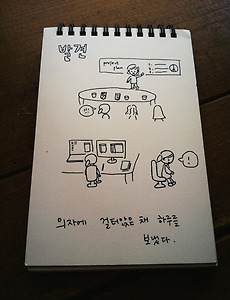 발견
project
plan
!!!
!
의자에 걸터앉은 채 하루를
보냈다.